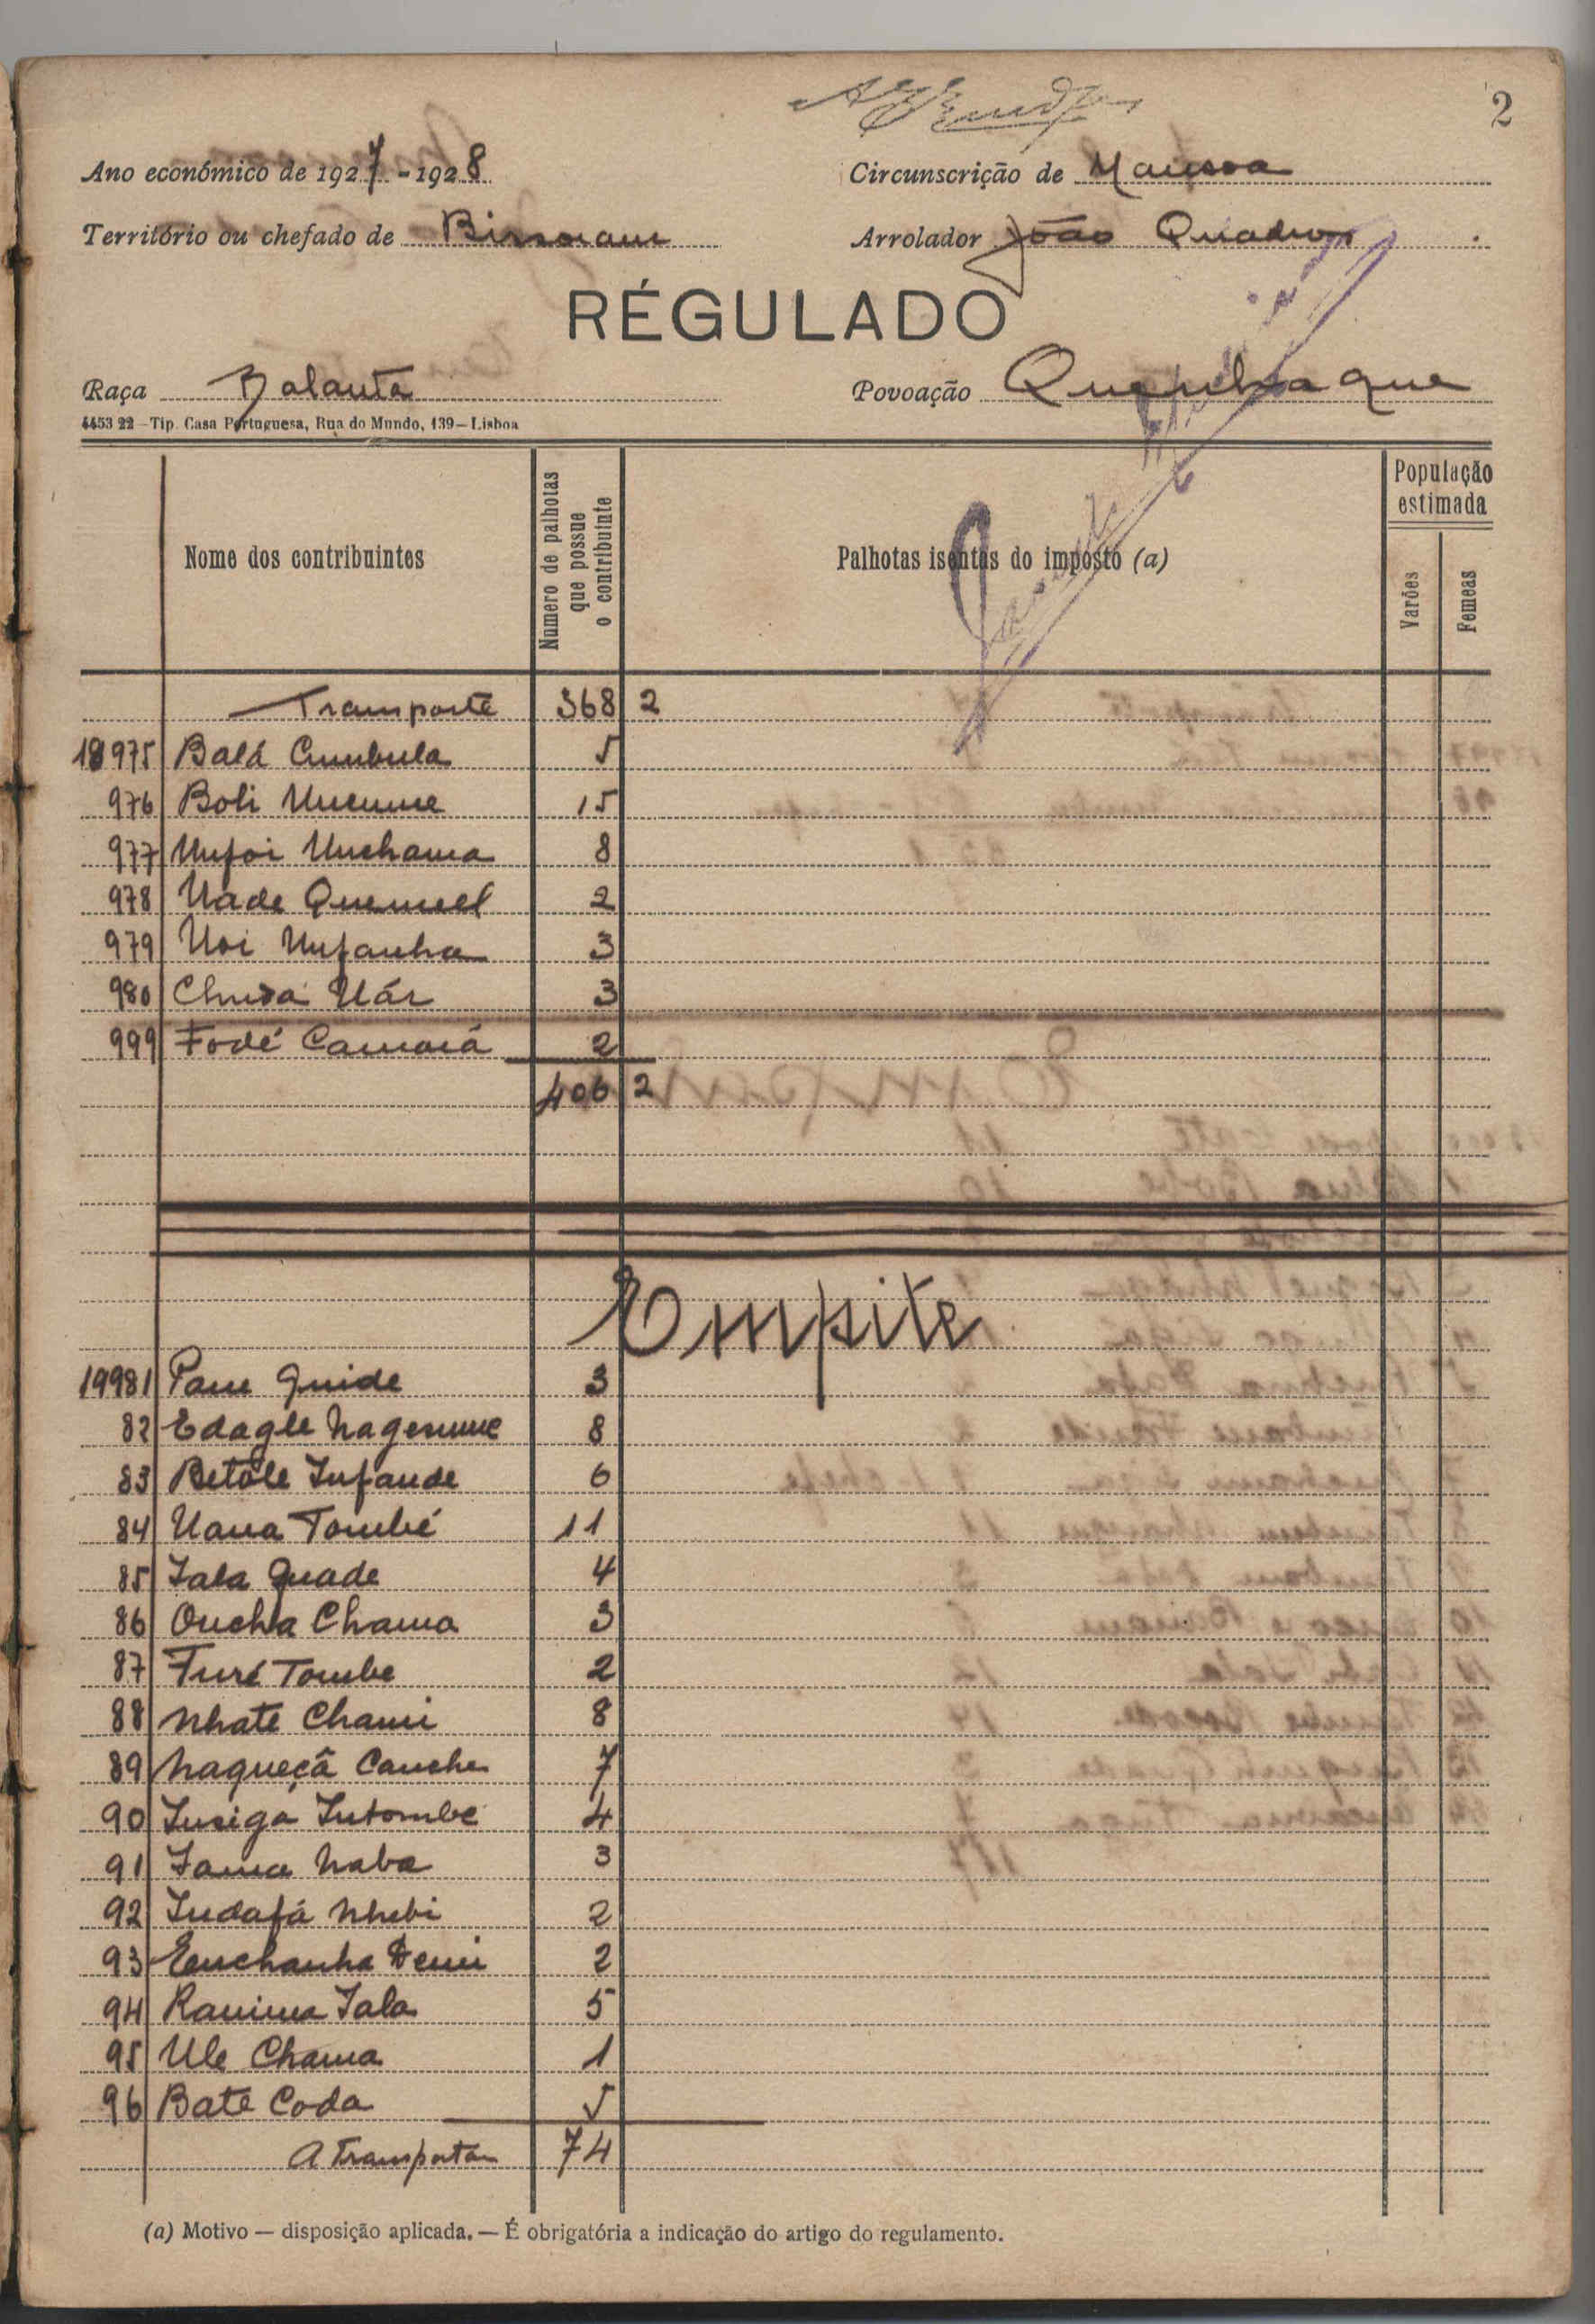 2
Ano económico de 1927-1928
Circunscrição de Mansoa
Território ou chefado de Bissoram
Arrolador João Quadros
RÉGULADO
Raça Balanta
Povoação
4453 22 – Tip. Casa Portuguesa, Rua do Mundo, 139 – Lisboa
Nome dos contribuintes
Numero de palhotas que possue o contribuinte
Palhotas isentas do imposto (a)
População estimada
Varões
Femeas
Transporte 368 2
19975 Balá Cumbula 5
976 Boli 15
977 Unfoi Unchama 8
978 Uade 2
979 Uoi Unfanha 3
980 Uár 3
999 Fodé Camará 2
406 2
Empite
19981 Pam Guide 3
82 Edagle 8
83 Betole Infande 6
84 Uana Tombé 11
85 Iala Guade 4
86 Oncha Chama 3
87 Furé Tombe 2
88 Nhate Chami 8
89 Naqueçã Canche 7
90 Insiga Intombe 4
91 Iama Naba 3
92 Indafá Nhebi 2
93 Enchanha 2
94 Ranima Iala 5
95 Ule Chama 1
96 Bate Coda 5
A Transportar 74
(a) Motivo — disposição aplicada. — É obrigatória a indicação do artigo do regulamento.